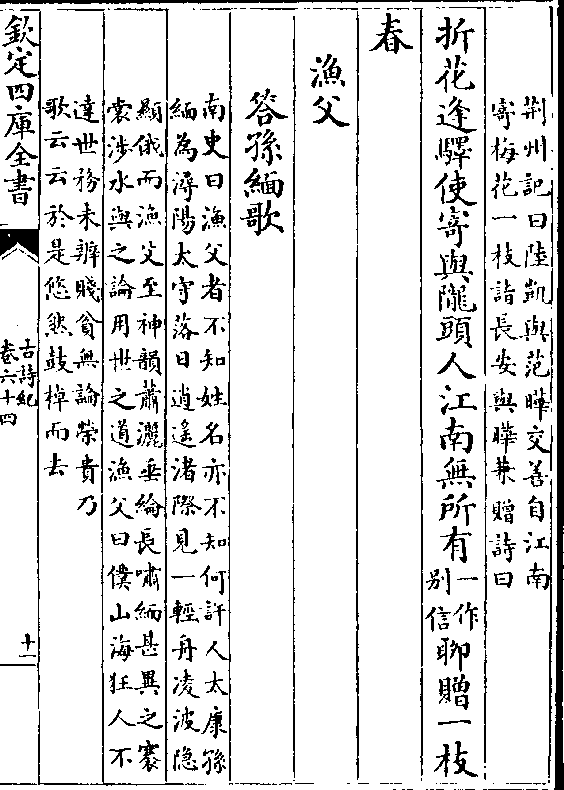 荆州記曰陸凱與范曄交善自江南
寄梅花一枝詣長安與曄兼贈詩曰
折花逢驛使寄與隴頭人江南無所有一作别信聊贈一枝
春
漁父
答孫緬歌
南史曰漁父者不知姓名亦不知何許人太康孫
緬為潯陽太守落日逍遥渚際見一輕舟凌波隐
顯俄而漁父至神韻蕭灑垂綸長嘯緬甚異之褰
裳涉水與之論用世之道漁父曰僕山海狂人不
達世務未辨賤貧無論榮貴乃
歌云云於是悠然鼓棹而去
欽定四庫全書
古詩紀
卷六十四
十一